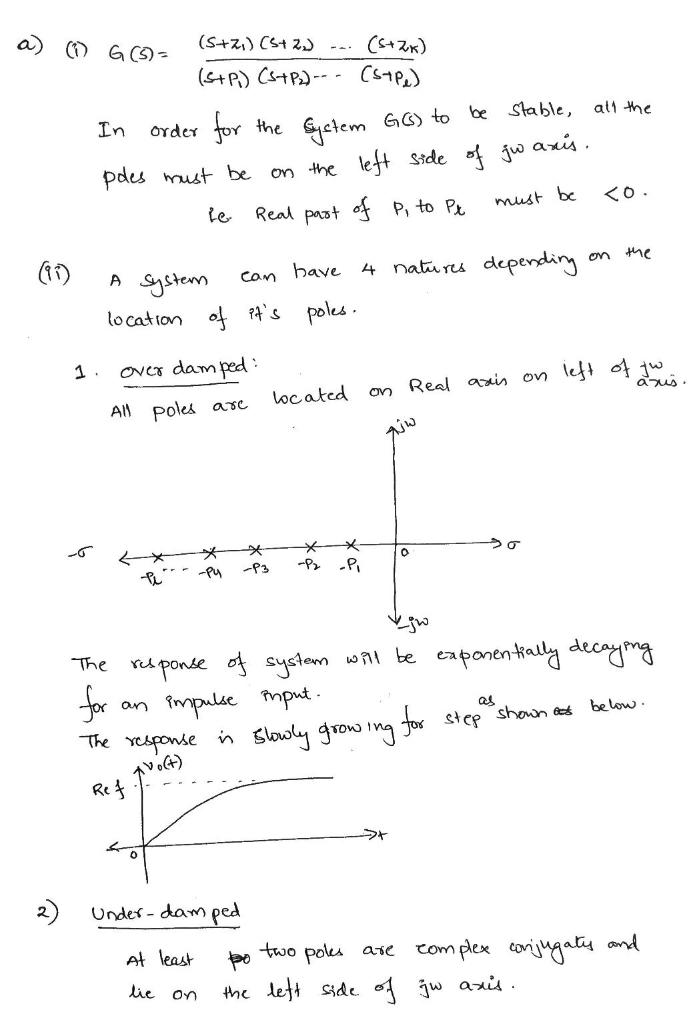 a) (i) G(S) = (S+Z1) (S+Z2) --- (S+ZK)
(S+P1) (S+P2)--- (S+Pl)
In order for the System G(S) to be stable, all the
poles must be on the left side of jw axis.
ie Real part of P1 to Pl must be <0.
(ii) A system can have 4 natures depending on the
location of it's poles.
1. over damped:
All poles are located on Real axis on left of jw
axis.
jw
-σ -Pl ---- -P4 -P3 -P2 -P1 0 σ
-jw
The response of system will be exponentially decaying
for an impulse input.
The response is slowly growing for step as shown below.
Vo(t)
Ref
0 t
2) Under-damped
At least two poles are complex conjugates and
lie on the left side of jw axis.